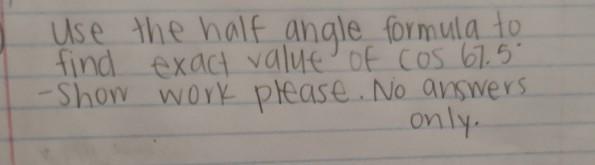 Use the half angle formula to
find exact value of cos 67.5°
-Show work please. No answers
only.